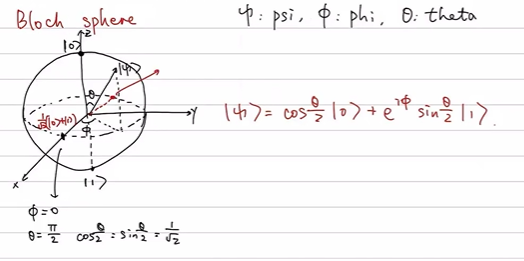 Bloch sphere
ψ: psi, ϕ: phi, θ: theta
z
|0⟩
|ψ⟩
θ
1/√2(|0⟩+|1⟩)
ϕ
y
|ψ⟩ = cos θ/2 |0⟩ + e^{iϕ} sin θ/2 |1⟩.
x
|1⟩
ϕ=0
θ=π/2 cos θ/2 = sin θ/2 = 1/√2